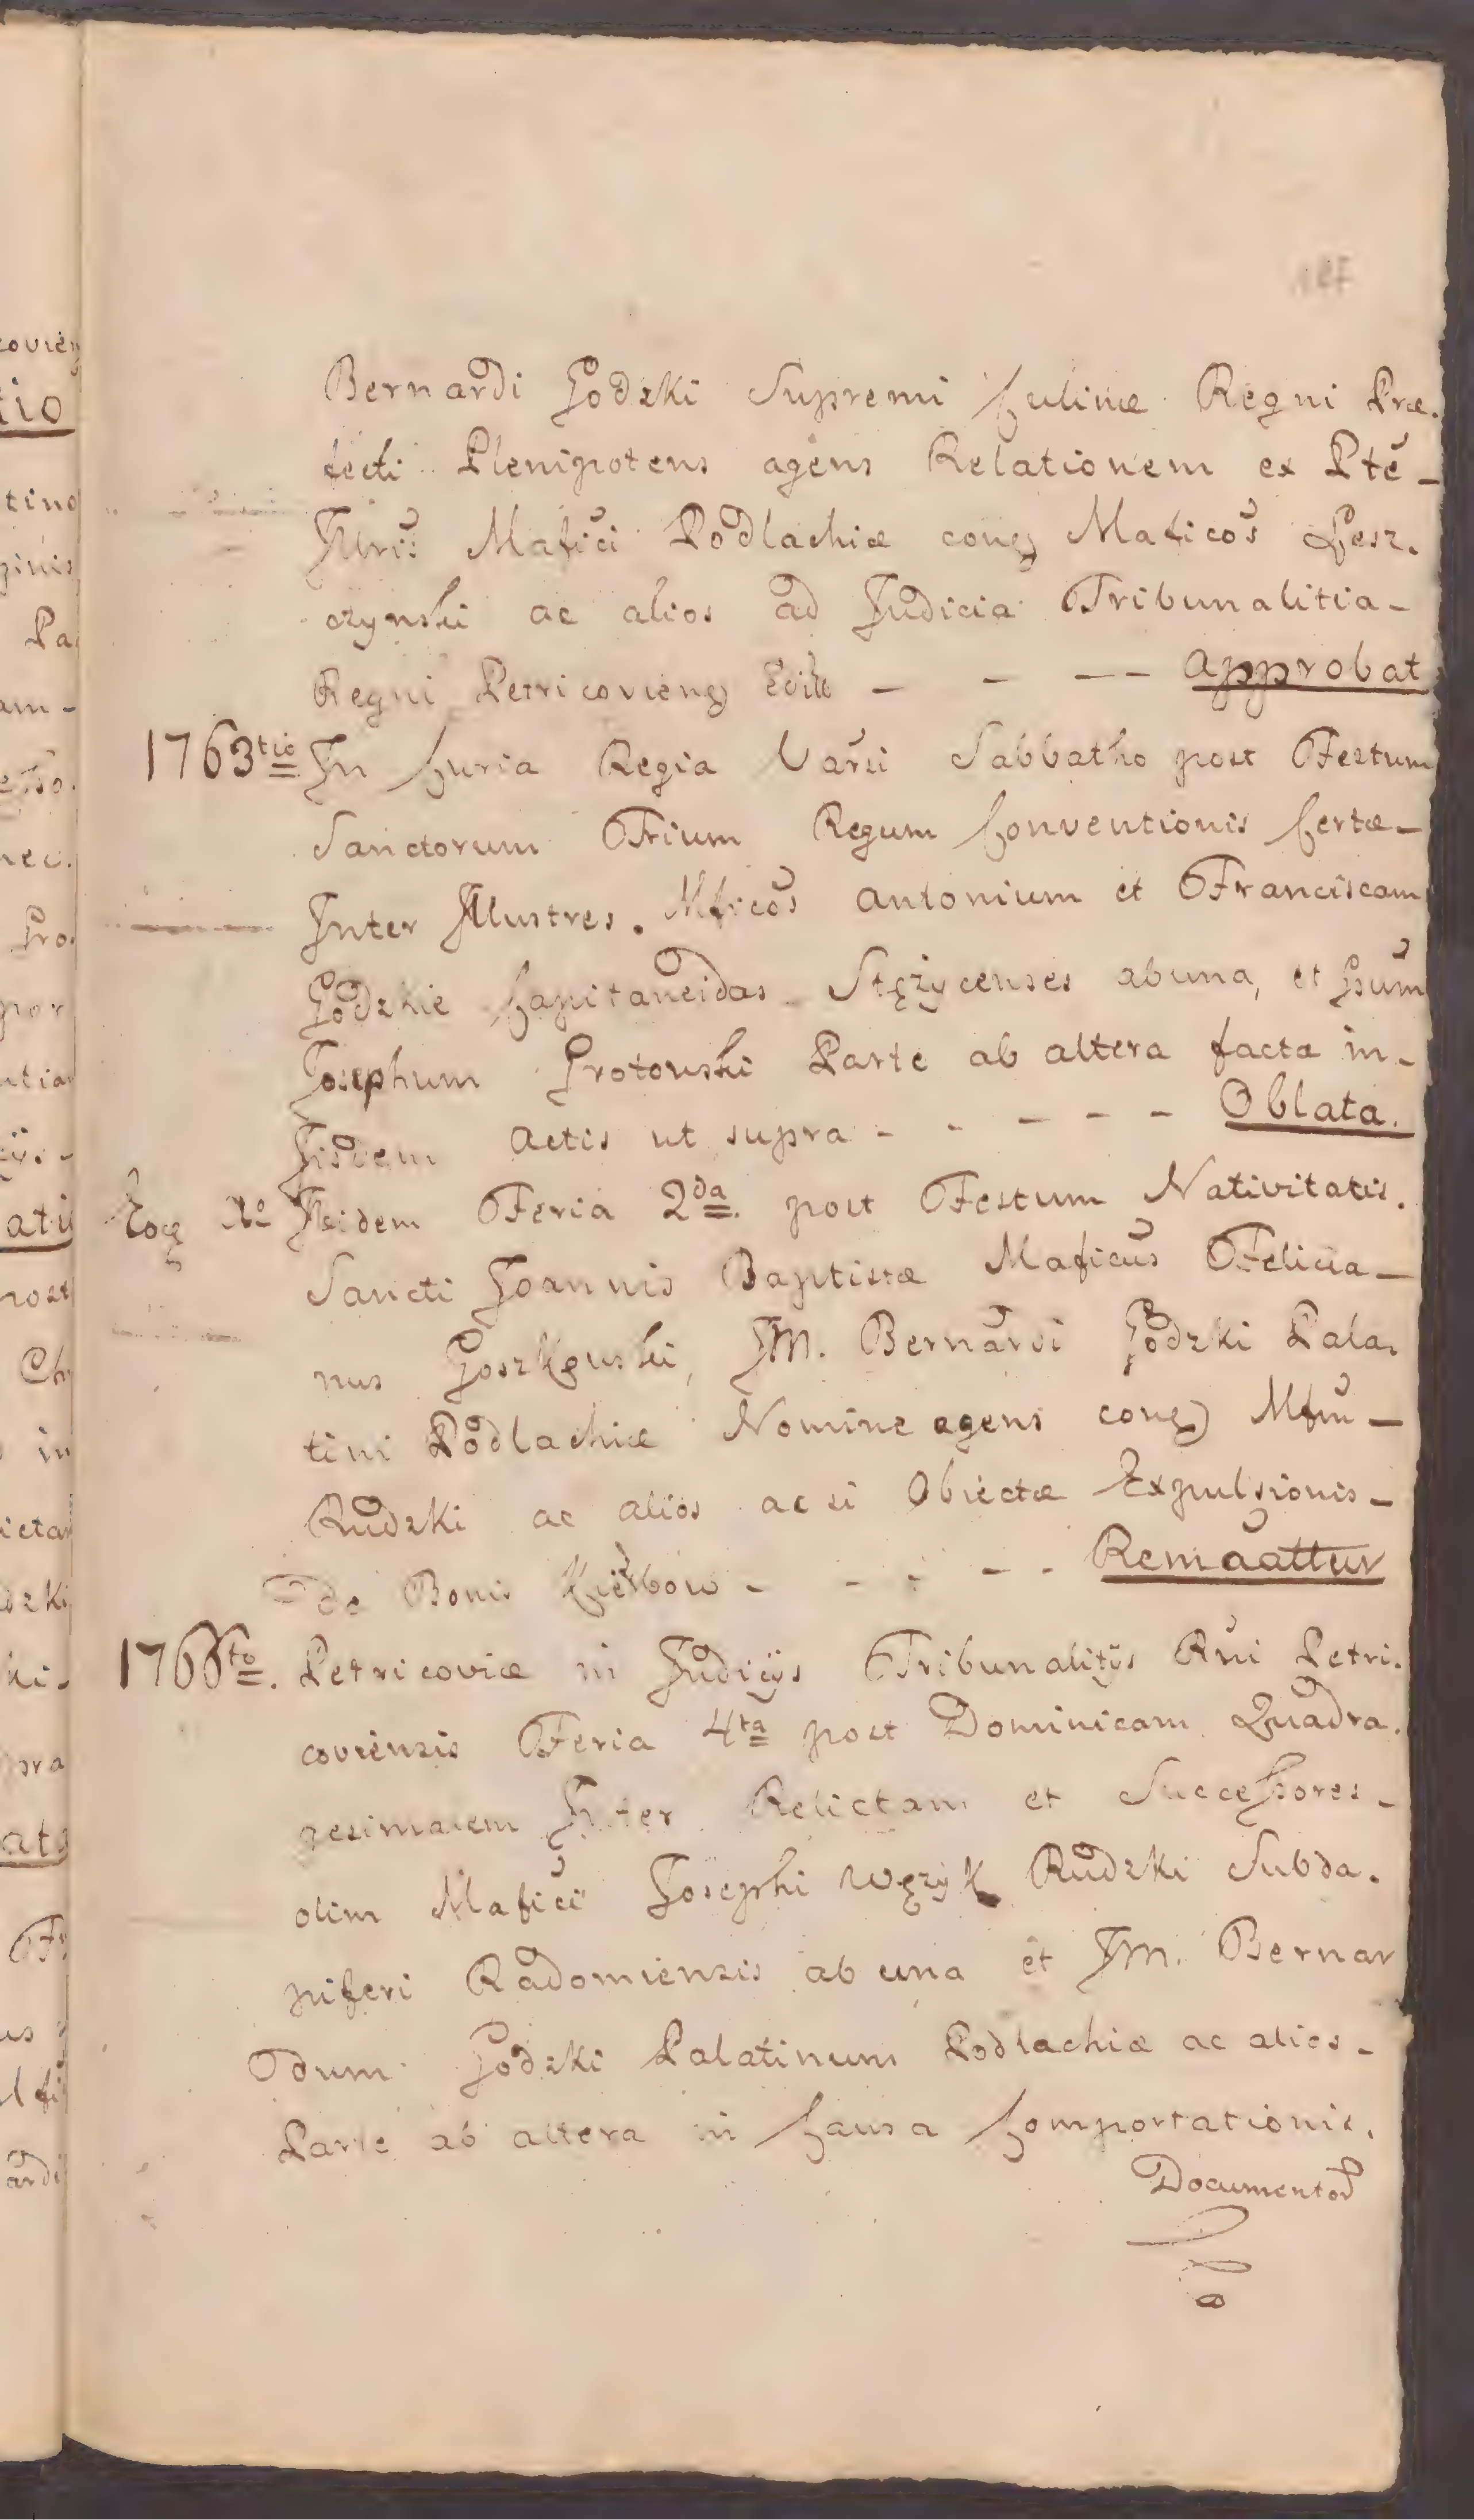 Bernardi Godzki Supremi Culinæ Regni Præ.
fecti Plenipotens agens Relationem ex Ptē -
Illris Mafici Podlachiæ conq Maficos Lesz.
czynski ac alios ad Judicia Tribunalitia -
Regni Petricovienq Edit - - - - Approbat
1763tio In Curia Regia Varsi Sabbatho post Festum
Sanctorum Trium Regum Conventionis Certæ -
Inter Illustres. Mficos Antonium et Franciscam
Godzkie Capitaneidas Stężycenses ab una, et Gsum
Josephum Grotowski Parte ab altera factæ in -
Iisdem Actis ut supra - - - - - Oblata.
Eoq No Ibidem Feria 2da post Festum Nativitatis.
Sancti Joannis Baptistæ Maficus Felicia -
nus Goszkowski, JM. Bernardi Godzki Pala.
tini Podlachiæ Nomine agens conq Mfm -
Rudzki ac alios ac si Obiectæ Expulsionis -
de Bonis - - - - - Remaattur
1766to. Petricoviæ in Judicijs Tribunalitijs Rni Petri.
coviensis Feria 4ta post Dominicam Quadra.
gesimalem Inter Relictam et Successores -
olim Mafici Josephi Wężyk Rudzki Subda.
piferi Radomiensis ab una et JM. Bernar
dum Godzki Palatinum Podlachiæ ac alios -
Parte ab altera in Causa Comportationis.
Documentor